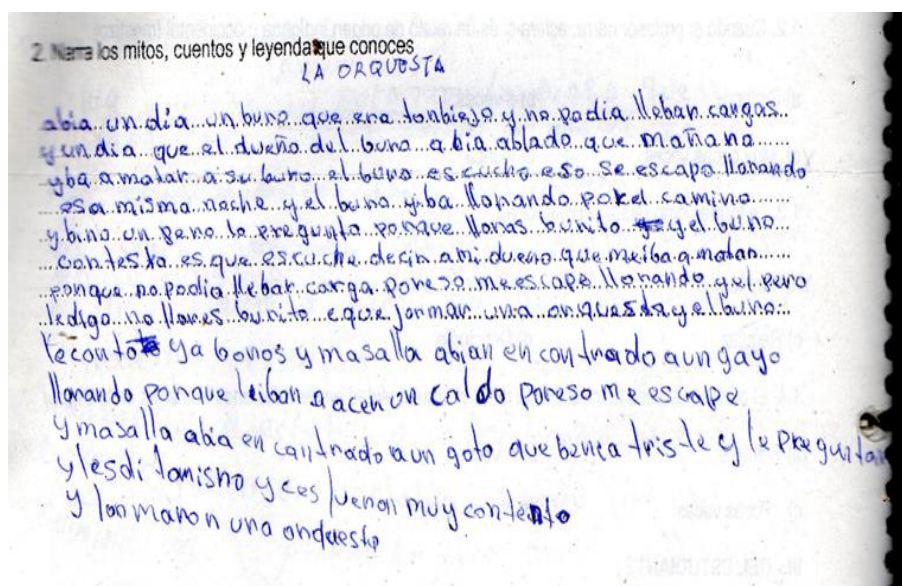 2. Narra los mitos, cuentos y leyenda que conoces
LA ORQUESTA
abia un día un buro que era tanbiejo y no podia lleban cargas
y un día que el dueño del buro abia ablado que mañana
yba a matar a su buro el buro escucho eso se escapo llorando
esa misma noche y el buro yba llorando por el camino
y bino un pero le pregunta porque lloras burito y el buro
contesta es que escuche decir a mi dueno que me iba a matar
porque no podia llebar carga por eso me escape llorando y el pero
le digo no llores burito e que formar una orquesta y el buro
le conto ya bonos y masalla abian encontrado a un gayo
llorando porque leiban a acer un caldo por eso me escape
y masalla abia encontrado a un gato que benia triste y le preguntan
y les di lo mismo y ces fueron muy contento
y formaron una orquesta